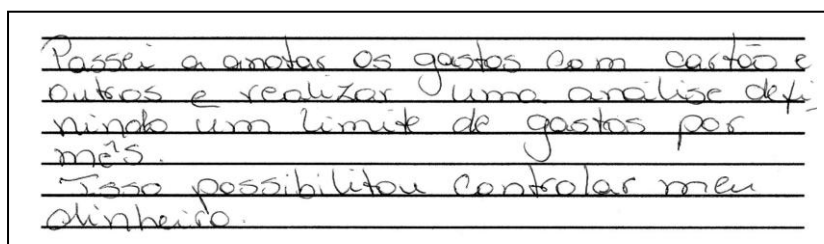 Passei a anotar os gastos com cartão e
outros e realizar uma análise defi-
nindo um limite de gastos por
mês.
Isso possibilitou controlar meu
dinheiro.